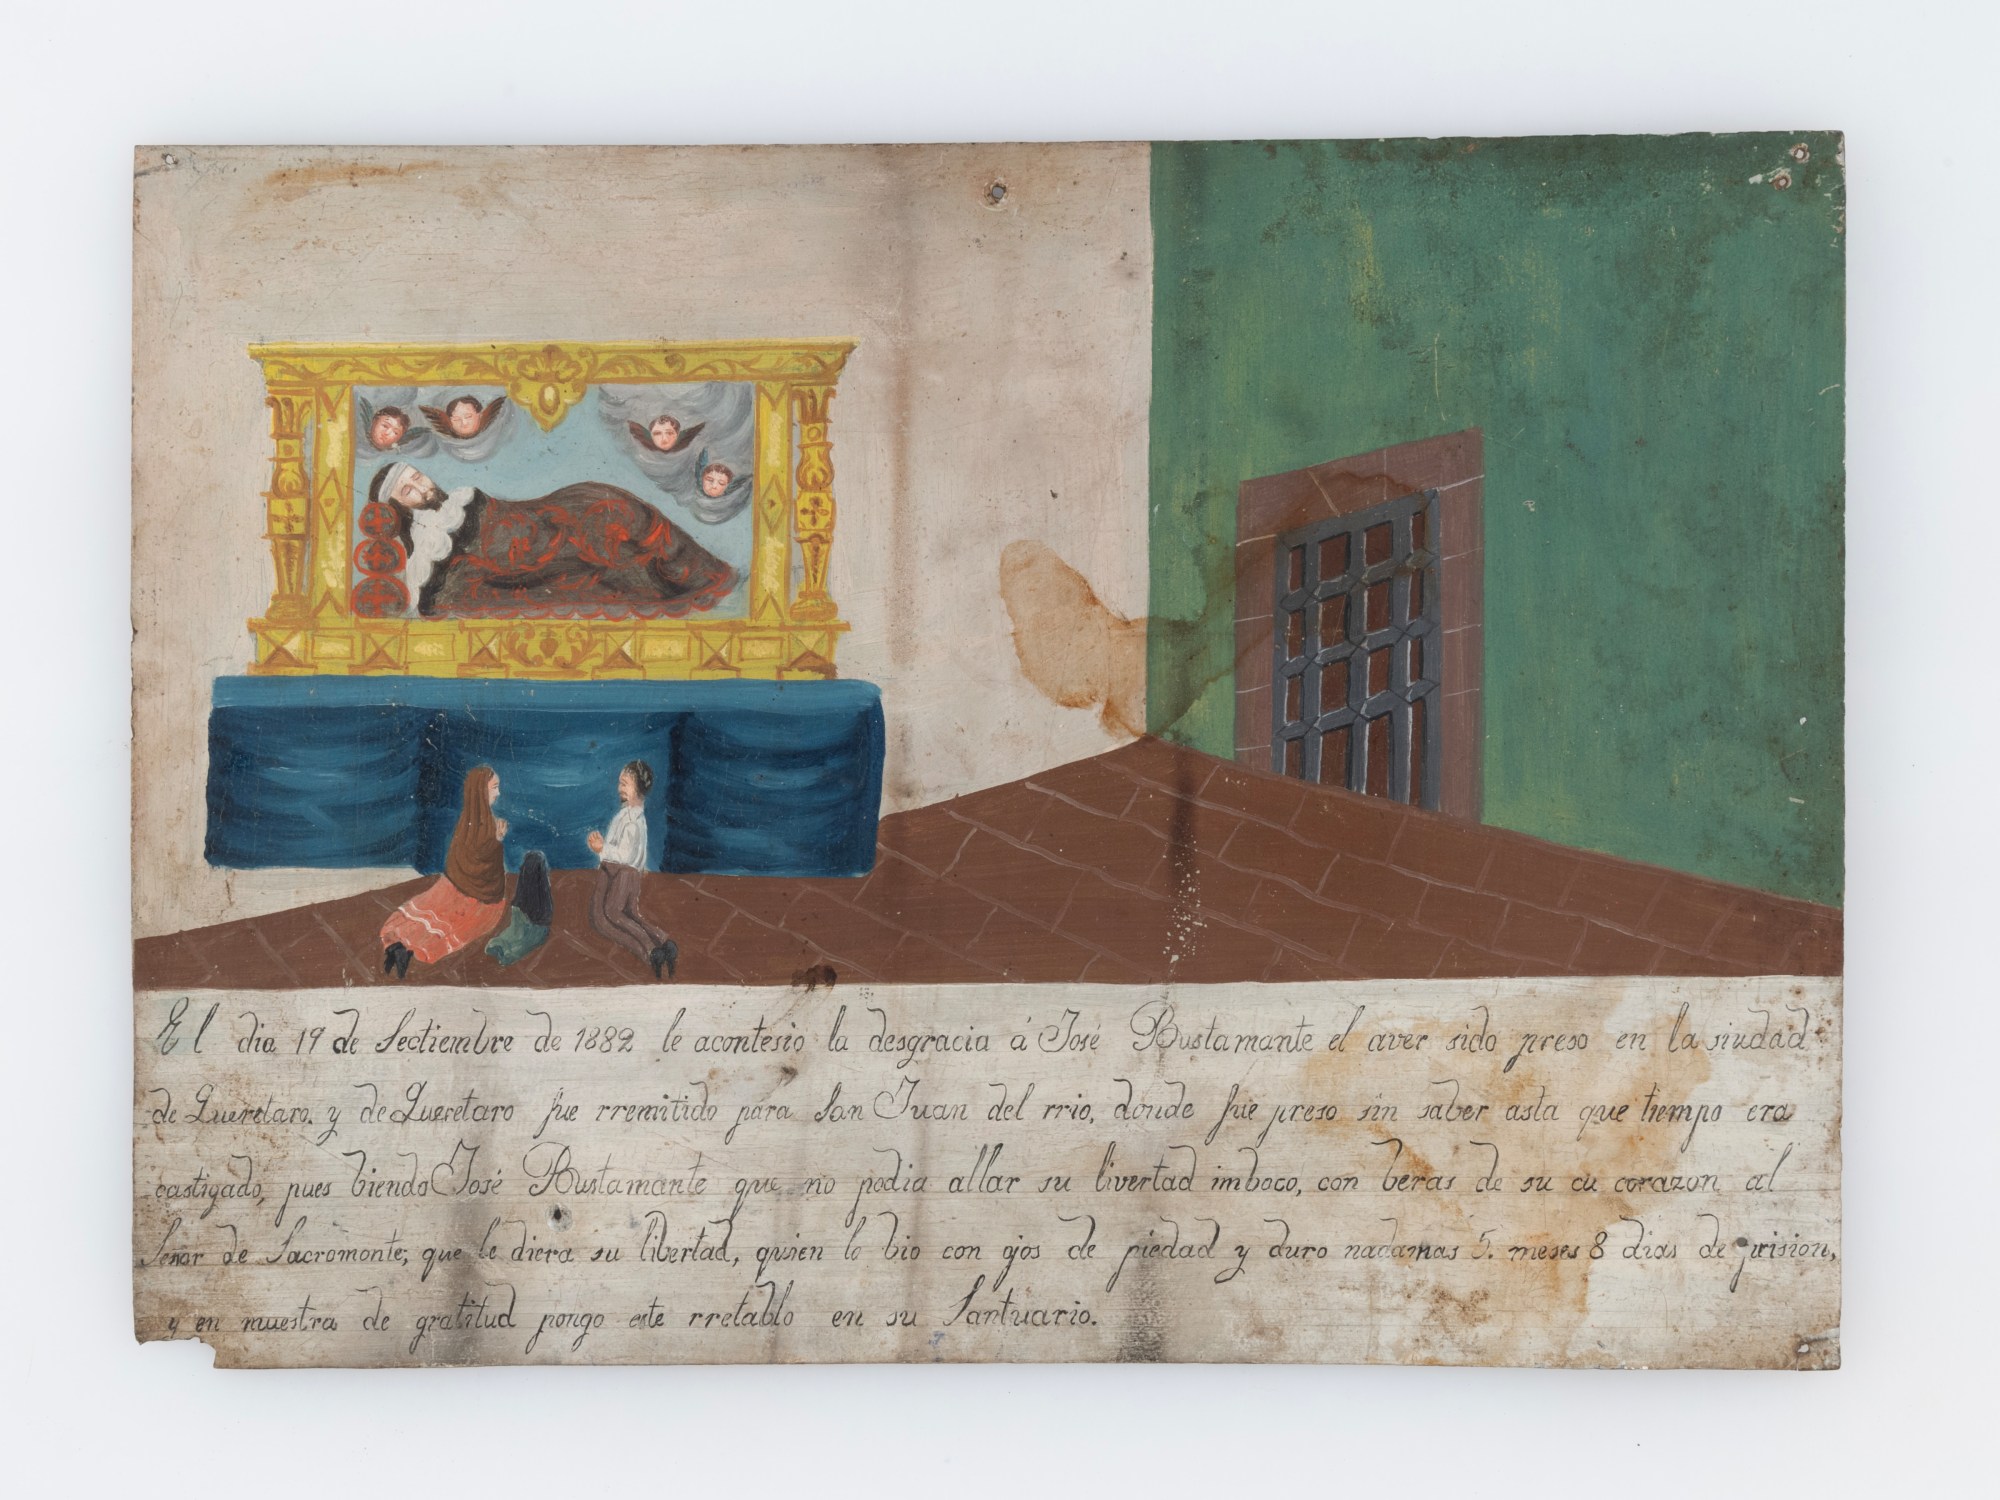 El dia 19 de Sectiembre de 1882 le acontesio la desgracia á José Bustamante el aver sido preso en la siudad
de Queretaro. y de Queretaro fue rremitido para San Juan del rrio, donde fue preso sin saber asta que tiempo era
castigado, pues biendo José Bustamante que no podia allar su livertad imboco, con beras de su cu corazon al
Señor de Sacromonte, que le diera su libertad, quien lo bio con ojos de piedad y duro nadamas 5. meses 8 dias de prision,
y en muestra de gratitud pongo este rretablo en su Santuario.